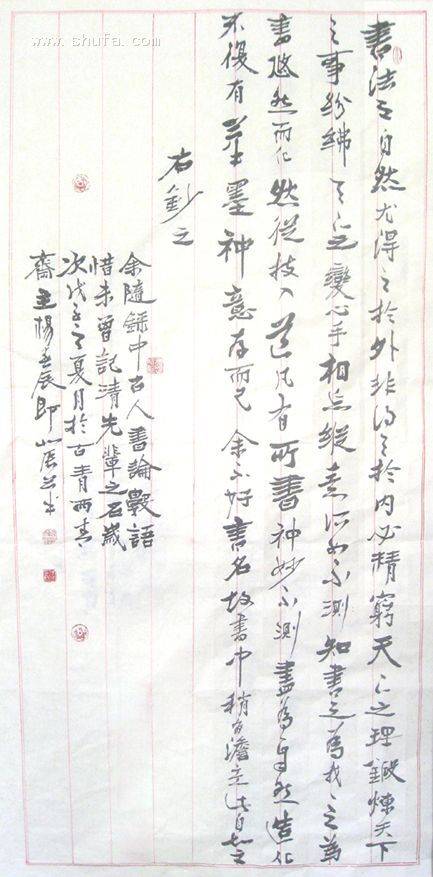 www.shufa.com
書法至自然尤得之於外非得之於内必精窮天下之理鍛煉天下
之事紛紼天下之變心手相忘縱意所如不測知書之為我我之為
書悠然而化然從技入道凡有所書神妙不測盡為自然造化
不復有筆墨神意存而已余不好書名故書中稍有澹立此自知之
右鈔之
余隨録中古人書論數語
惜未曾記清先輩之名歲
次戊子之夏月於古青
齋主楊辰